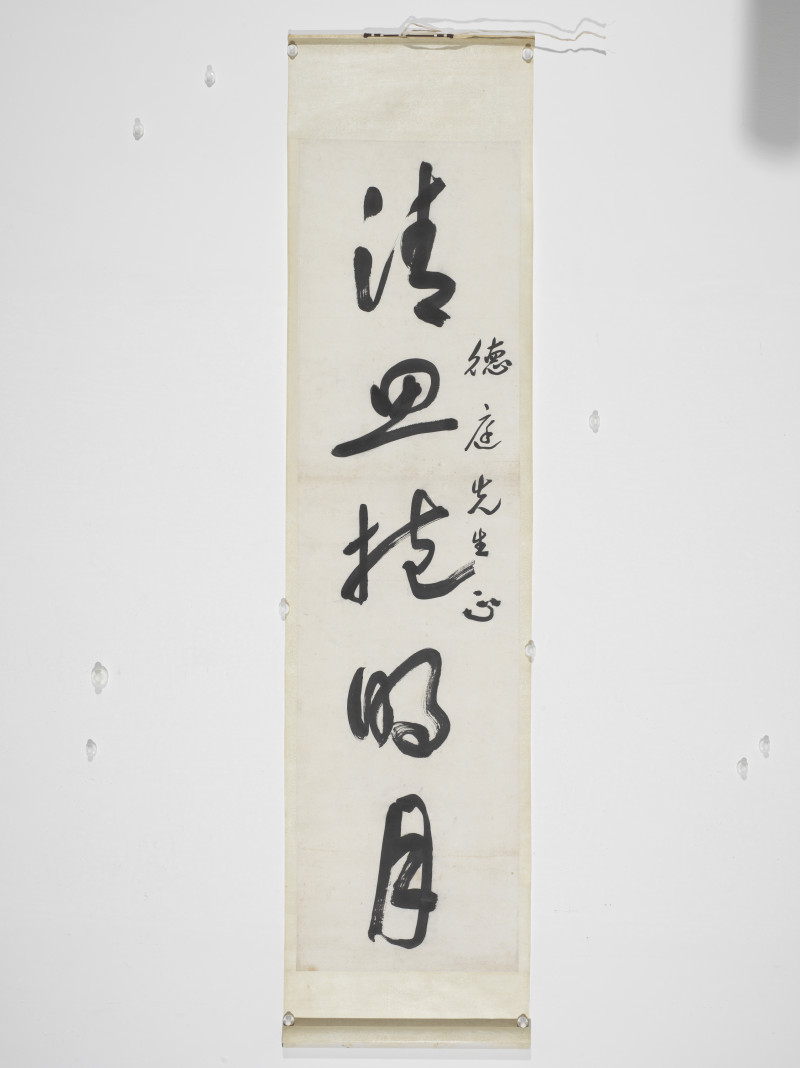 德庭先生正
清思抱明月